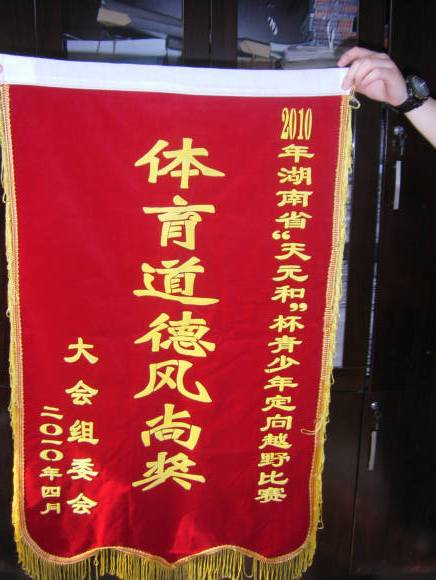 2010年湖南省“天元和”杯青少年定向越野比赛
体育道德风尚奖
大会组委会
二〇一〇年四月